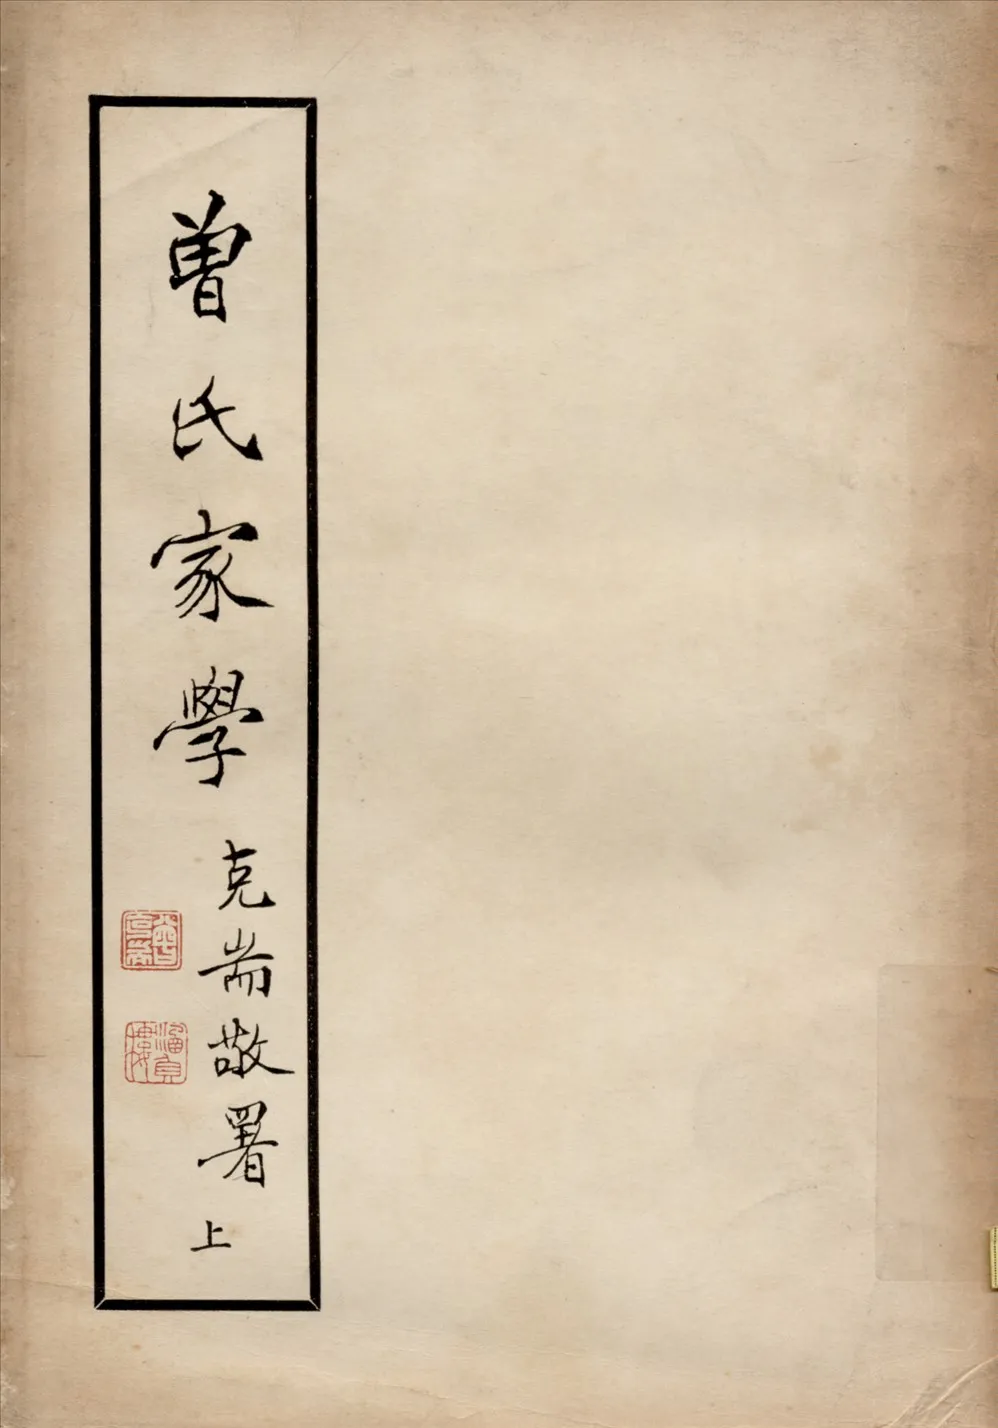 曾氏家學
克耑敬署
上